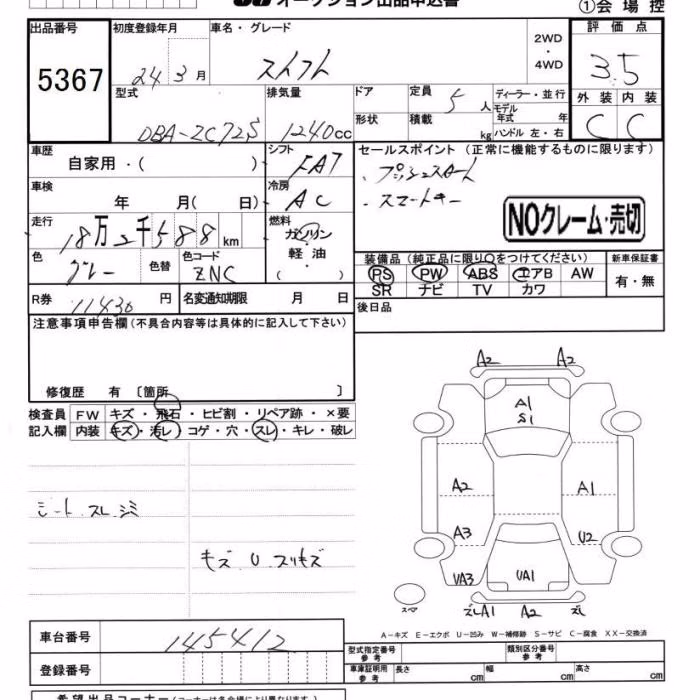 オークション出品申込書
①会場控
出品番号 初度登録年月 車名・グレード 評価点
5367 24 3月 スイフト 2WD・4WD 3.5
型式 排気量 ドア 定員 5人 ディーラー・並行 外装 内装
DBA-ZC72S 1240cc 形状 積載 kg モデル年式 年 C C
ハンドル 左・右
車歴 シフト セールスポイント (正常に機能するものに限ります)
自家用・( ) FAT ・プッシュスタート
車検 冷房 ・スマートキー
年 月( 日) AC
NOクレーム・売切
走行 燃料
18万2千588km ガソリン
軽油
( )
色 色替 色コード
グレー ZNC
装備品 (純正品に限り○をつけてください) 新車保証書
PS PW ABS エアB AW 有・無
SR ナビ TV カワ
R券 11430円 名変通知期限 月 日 後日品
注意事項申告欄(不具合内容等は具体的に記入して下さい)
修復歴 有 〔箇所 〕
検査員 FW キズ・飛石・ヒビ割・リペア跡・×要
記入欄 内装 キズ・汚レ・コゲ・穴・スレ・キレ・破レ
A2 A2
A1
S1
A2 A1
シート スレ シミ
A3 U2
キズ U スリキズ
UA3 UA1
スペア
ズレA1 A2 ズレ
A-キズ E-エクボ U-凹み W-補修跡 S-サビ C-腐食 XX-交換済
車台番号 145412
型式指定番号 参考 類別区分番号 参考
登録番号
車庫証明用 参考 長さ cm 幅 cm 高さ cm
希望出品コーナー(コーナーは各会場により異なります)